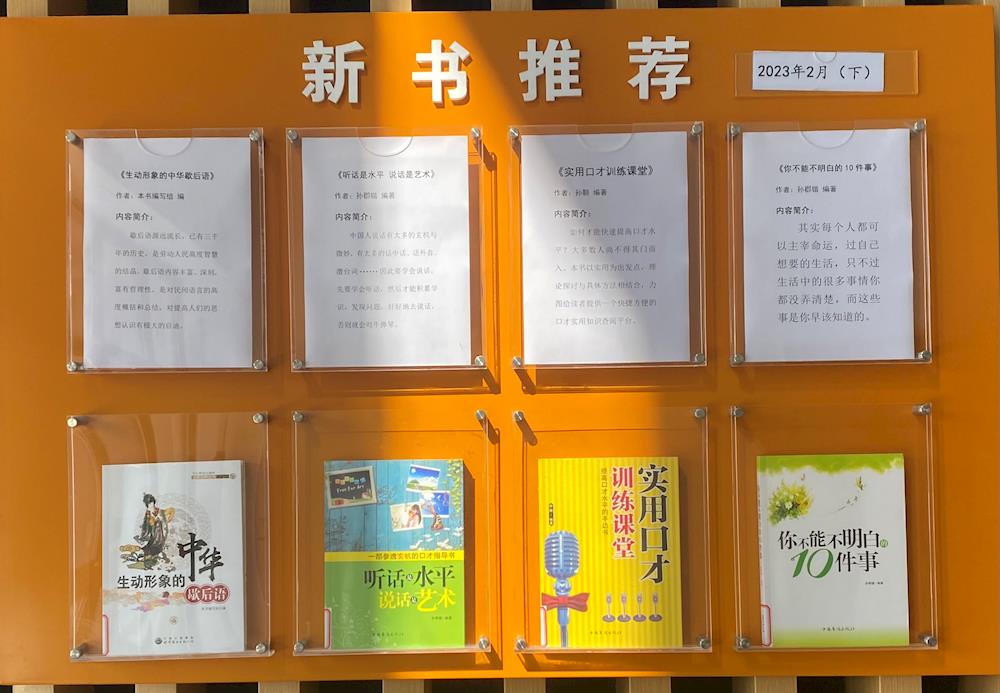 新书推荐
2023年2月（下）
《生动形象的中华歇后语》
作者：本书编写组 编
内容简介：
歇后语源远流长，已有三千
年的历史，是劳动人民高度智慧
的结晶。歇后语内容丰富、深刻，
富有哲理性，是对民间语言的高
度概括和总结，对提高人们的思
想认识有极大的启迪。
《听话是水平 说话是艺术》
作者：孙郡锴 编著
内容简介：
中国人说话有太多的玄机与
微妙，有太多的话中话、话外音、
潜台词……因此要学会说话，
先要学会听话，然后才能积累学
识，发现问题，好好地去说话，
否则就会对牛弹琴。
《实用口才训练课堂》
作者：孙颢 编著
内容简介：
如何才能快速提高口才水
平？大多数人尚不得其门而
入。本书以实用为出发点，理
论探讨与具体方法相结合，力
图给读者提供一个快捷方便的
口才实用知识查阅平台。
《你不能不明白的10件事》
作者：孙郡锴 编著
内容简介：
其实每个人都可
以主宰命运，过自己
想要的生活，只不过
生活中的很多事情你
都没弄清楚，而这些
事是你早该知道的。
中华
生动形象的
歇后语
一部参透玄机的口才指导书
听话是水平
说话是艺术
实用口才
训练课堂
提高口才水平的手边书
你不能不明白的
10件事
中国华侨出版社